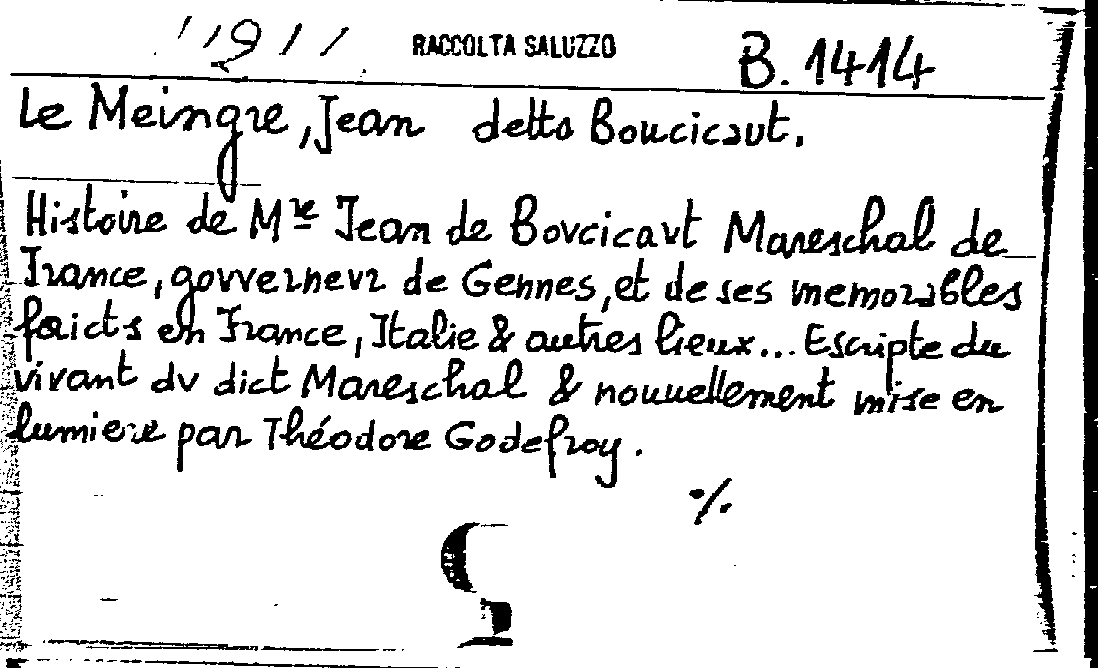 RACCOLTA SALUZZO B. 1414
Le Meingre, Jean detto Boucicaut.
Histoire de Mre Jean de Bovcicavt Mareschal de
France, govvernevr de Gennes, et de ses memorables
faicts en France, Italie & autres lieux... Escripte du
vivant dv dict Mareschal & nouuellement mise en
lumiere par Théodore Godefroy.
./.